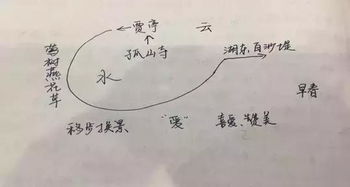 贾亭
云
孤山寺
湖东、白沙堤
莺树燕花草
水
早春
移步换景
“爱”
喜爱、赞美